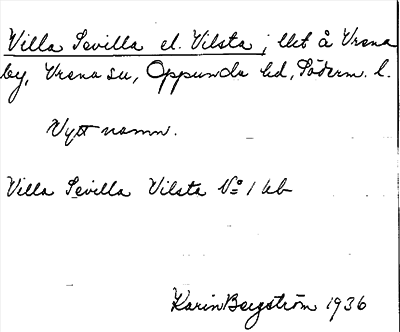 Villa Sevilla el. Vilsta, lht å Vrena
by, Vrena sn, Oppunda hd, Söderm. l.
Nytt namn.
Villa Sevilla Vilsta No 1 kb
Karin Bergström 1936